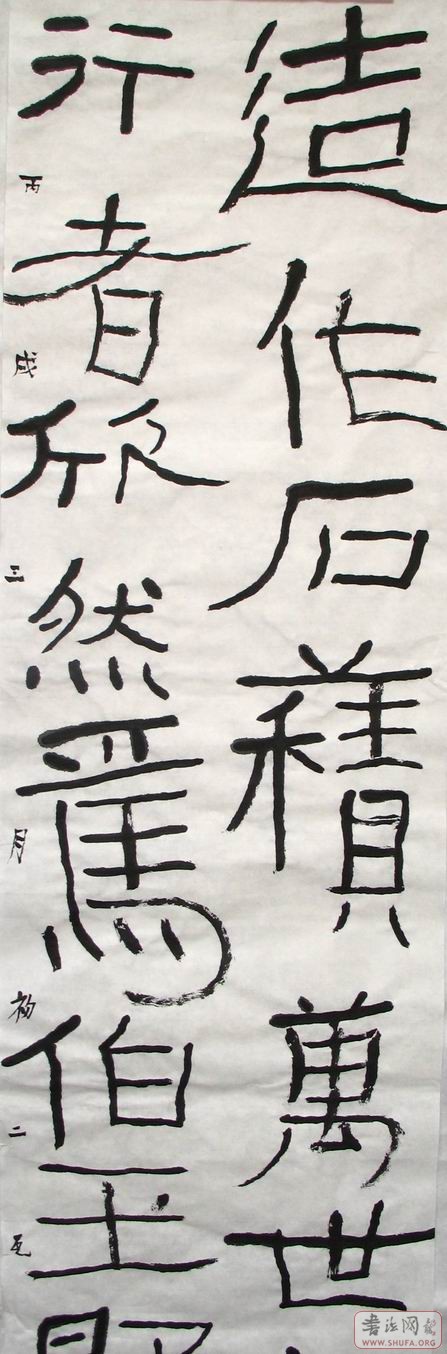 造作石䕆萬世
行者欣然焉伯玉
丙戌三月初二
书法网
WWW.SHUFA.ORG